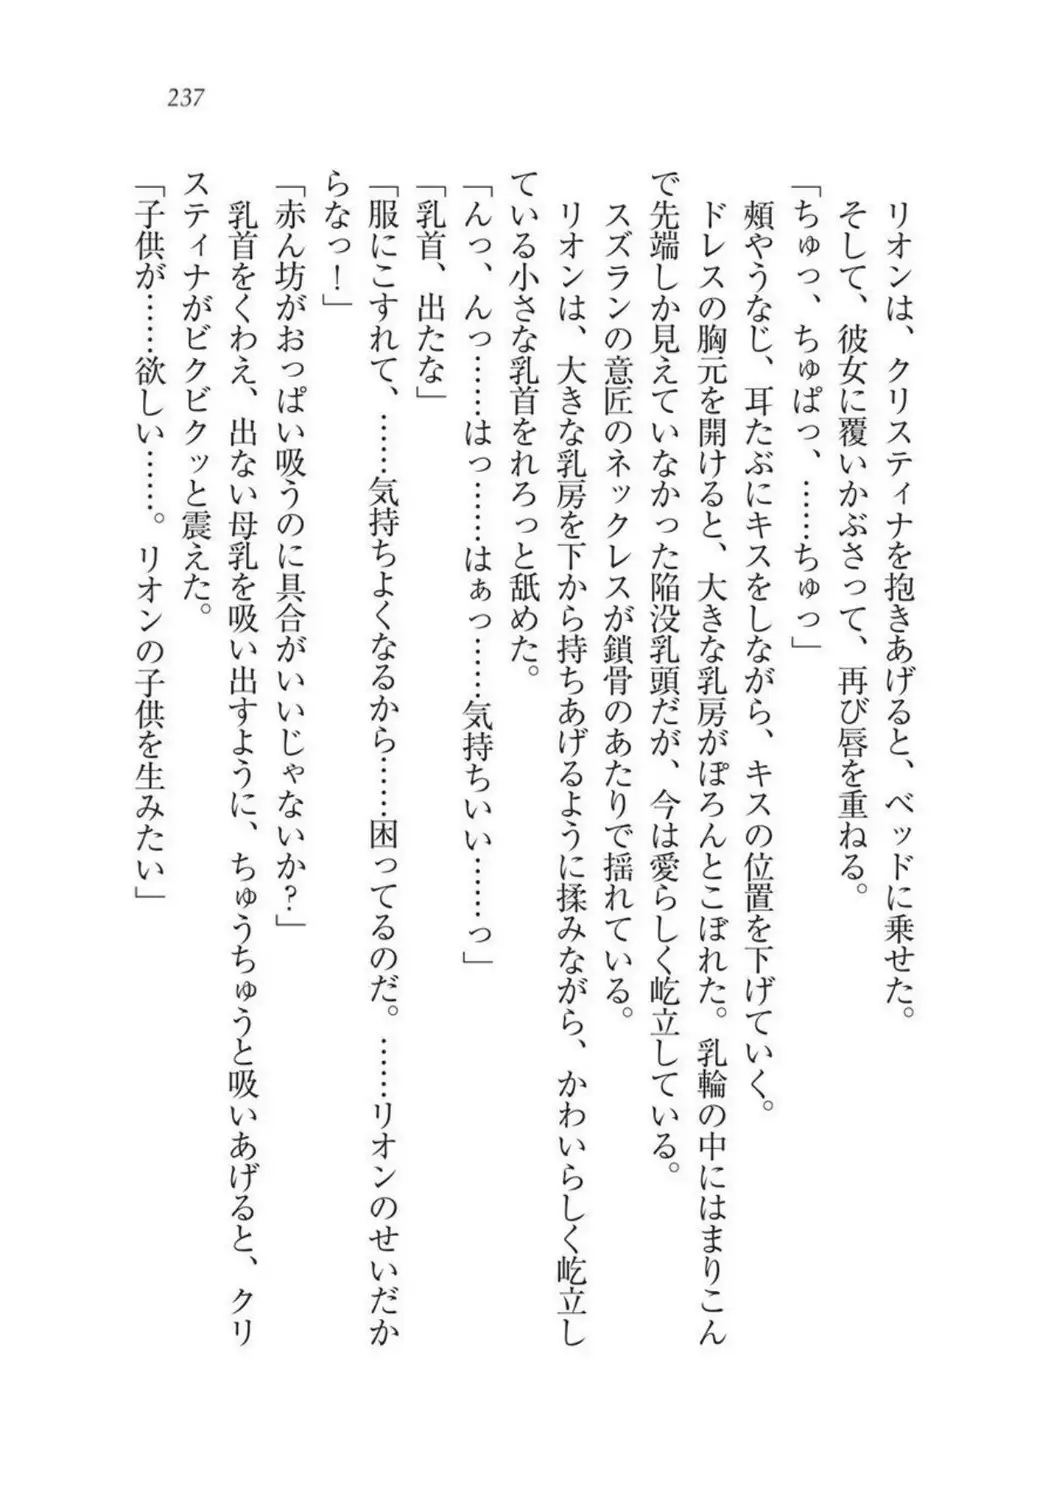 237
リオンは、クリスティナを抱きあげると、ベッドに乗せた。
そして、彼女に覆いかぶさって、再び唇を重ねる。
「ちゅっ、ちゅぱっ、……ちゅっ」
頰やうなじ、耳たぶにキスをしながら、キスの位置を下げていく。
ドレスの胸元を開けると、大きな乳房がぽろんとこぼれた。乳輪の中にはまりこん
で先端しか見えていなかった陥没乳頭だが、今は愛らしく屹立している。
スズランの意匠のネックレスが鎖骨のあたりで揺れている。
リオンは、大きな乳房を下から持ちあげるように揉みながら、かわいらしく屹立し
ている小さな乳首をれろっと舐めた。
「んっ、んっ……はっ……はぁっ……気持ちいい……っ」
「乳首、出たな」
「服にこすれて、……気持ちよくなるから……困ってるのだ。……リオンのせいだか
らなっ！」
「赤ん坊がおっぱい吸うのに具合がいいじゃないか？」
乳首をくわえ、出ない母乳を吸い出すように、ちゅうちゅうと吸いあげると、クリ
スティナがビクビクッと震えた。
「子供が……欲しい……。リオンの子供を生みたい」